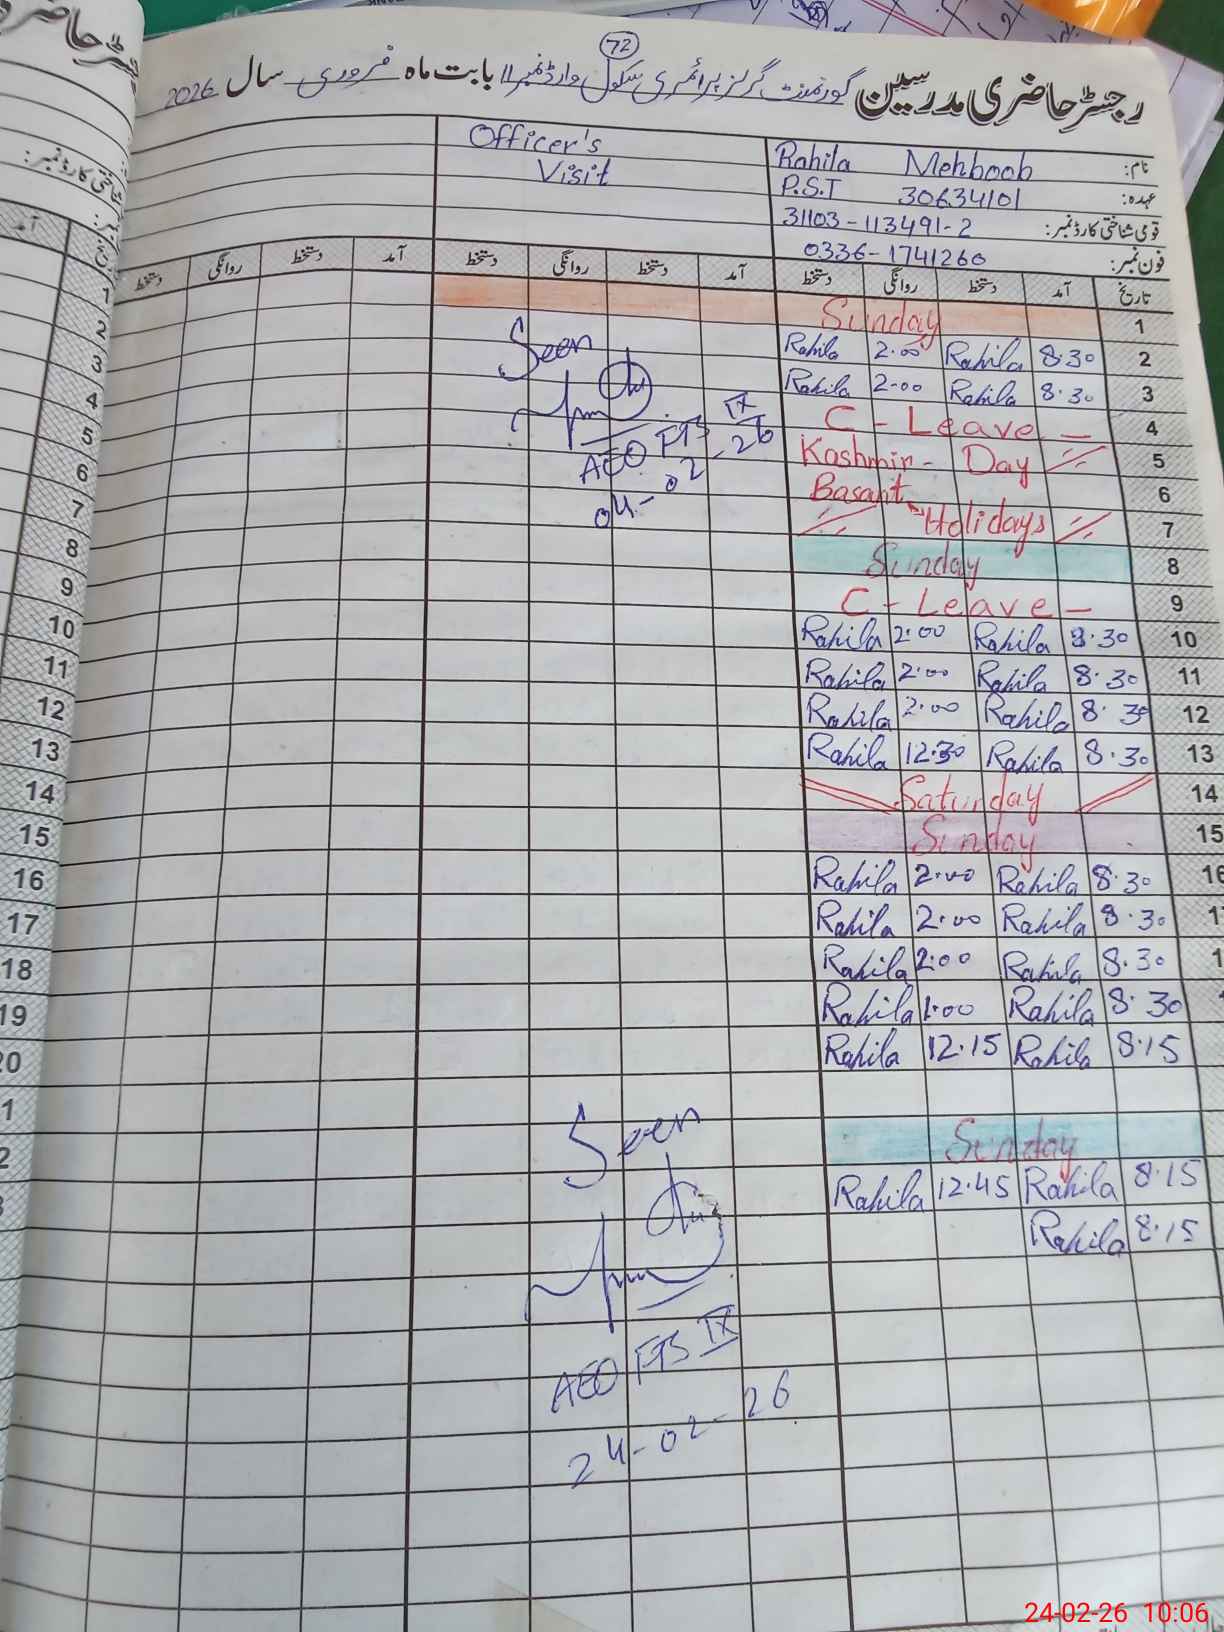 72
رجسٹر حاضری مدرسین گورنمنٹ گرلز پرائمری سکول وارڈ نمبر 11 بابت ماہ فروری سال 2026
نام: Rahila Mehboob
عہدہ: P.S.T 30634101
قومی شناختی کارڈ نمبر: 31103-113491-2
فون نمبر: 0336-1741260
Officer's
Visit
تاریخ آمد دستخط روانگی دستخط آمد دستخط روانگی دستخط آمد دستخط روانگی دستخط
1 Sunday
2 8.30 Rahila 2.00 Rahila
3 8.30 Rahila 2.00 Rahila
4 C - Leave -
5 Kashmir - Day
6 Basant
7 Holidays
8 Sunday
9 C - Leave -
10 8.30 Rahila 2.00 Rahila
11 8.30 Rahila 2.00 Rahila
12 8.30 Rahila 2.00 Rahila
13 8.30 Rahila 12.30 Rahila
14 Saturday
15 Sunday
16 8.30 Rahila 2.00 Rahila
8.30 Rahila 2.00 Rahila
8.30 Rahila 2.00 Rahila
8.30 Rahila 1.00 Rahila
8.15 Rahila 12.15 Rahila
Sunday
8.15 Rahila 12.45 Rahila
8.15 Rahila
Seen
AEO FTS IX
04-02-26
Seen
AEO FTS IX
24-02-26
رجسٹر حاضری
شناختی کارڈ نمبر:
آمد
تاریخ
1
2
3
4
5
6
7
8
9
10
11
12
13
14
15
16
17
18
19
20
24-02-26 10:06